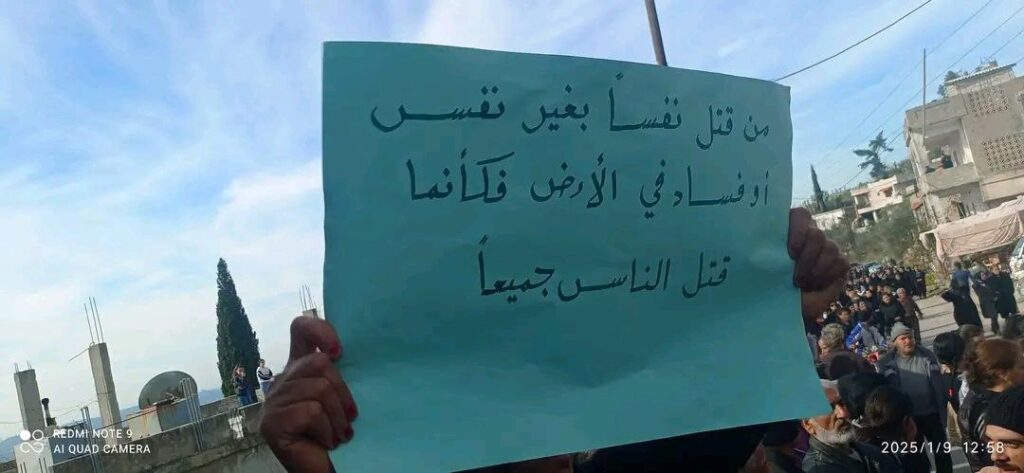 من قتل نفساً بغير نفس
أو فساد في الأرض فكأنما
قتل الناس جميعاً
REDMI NOTE 9
AI QUAD CAMERA
2025/1/9 12:58